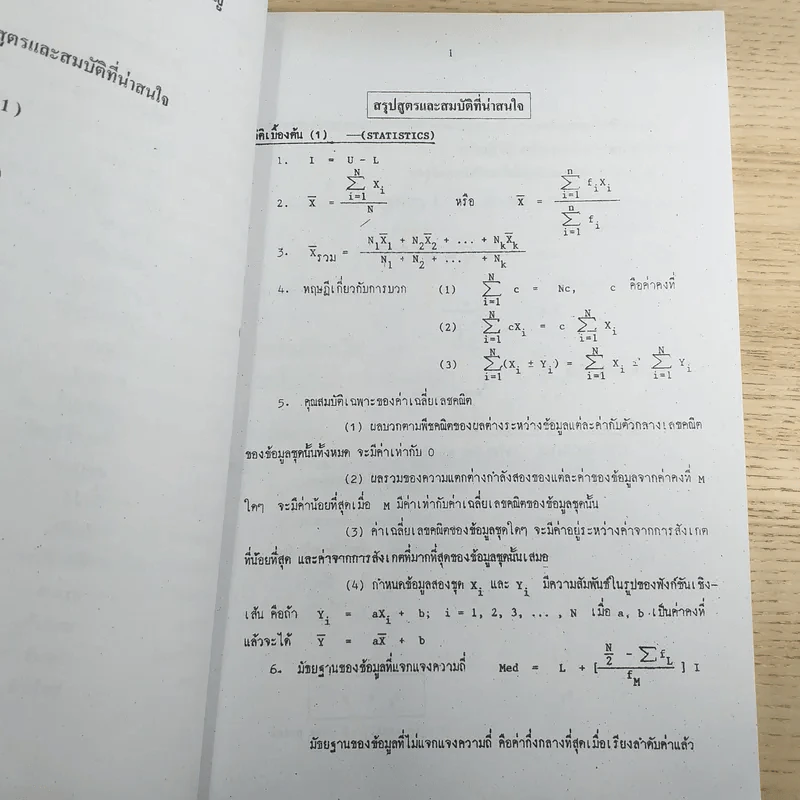 สูตรและสมบัติที่น่าสนใจ
1 )
1
สรุปสูตรและสมบัติที่น่าสนใจ
ติเบื้องต้น (1) —(STATISTICS)
1. I = U - L
2. X̄ = \frac{\sum_{i=1}^{N} X_i}{N} หรือ X̄ = \frac{\sum_{i=1}^{n} f_i X_i}{\sum_{i=1}^{n} f_i}
3. X̄_{รวม} = \frac{N_1X̄_1 + N_2X̄_2 + ... + N_kX̄_k}{N_1 + N_2 + ... + N_k}
4. ทฤษฎีเกี่ยวกับการบวก (1) \sum_{i=1}^{N} c = Nc, c คือค่าคงที่
(2) \sum_{i=1}^{N} cX_i = c \sum_{i=1}^{N} X_i
(3) \sum_{i=1}^{N} (X_i ± Y_i) = \sum_{i=1}^{N} X_i ± \sum_{i=1}^{N} Y_i
5. คุณสมบัติเฉพาะของค่าเฉลี่ยเลขคณิต
(1) ผลบวกตามพีชคณิตของผลต่างระหว่างข้อมูลแต่ละค่ากับตัวกลางเลขคณิต
ของข้อมูลชุดนั้นทั้งหมด จะมีค่าเท่ากับ 0
(2) ผลรวมของความแตกต่างกำลังสองของแต่ละค่าของข้อมูลจากค่าคงที่ M
ใดๆ จะมีค่าน้อยที่สุดเมื่อ M มีค่าเท่ากับค่าเฉลี่ยเลขคณิตของข้อมูลชุดนั้น
(3) ค่าเฉลี่ยเลขคณิตของข้อมูลชุดใดๆ จะมีค่าอยู่ระหว่างค่าจากการสังเกต
ที่น้อยที่สุด และค่าจากการสังเกตที่มากที่สุดของข้อมูลชุดนั้นเสมอ
(4) กำหนดข้อมูลสองชุด X_i และ Y_i มีความสัมพันธ์ในรูปของฟังก์ชันเชิง-
เส้น คือถ้า Y_i = aX_i + b; i = 1, 2, 3, ... , N เมื่อ a, b เป็นค่าคงที่
แล้วจะได้ Ȳ = aX̄ + b
6. มัธยฐานของข้อมูลที่แจกแจงความถี่ Med = L + [\frac{\frac{N}{2} - \sum f_L}{f_M}] I
มัธยฐานของข้อมูลที่ไม่แจกแจงความถี่ คือค่ากึ่งกลางที่สุดเมื่อเรียงลำดับค่าแล้ว